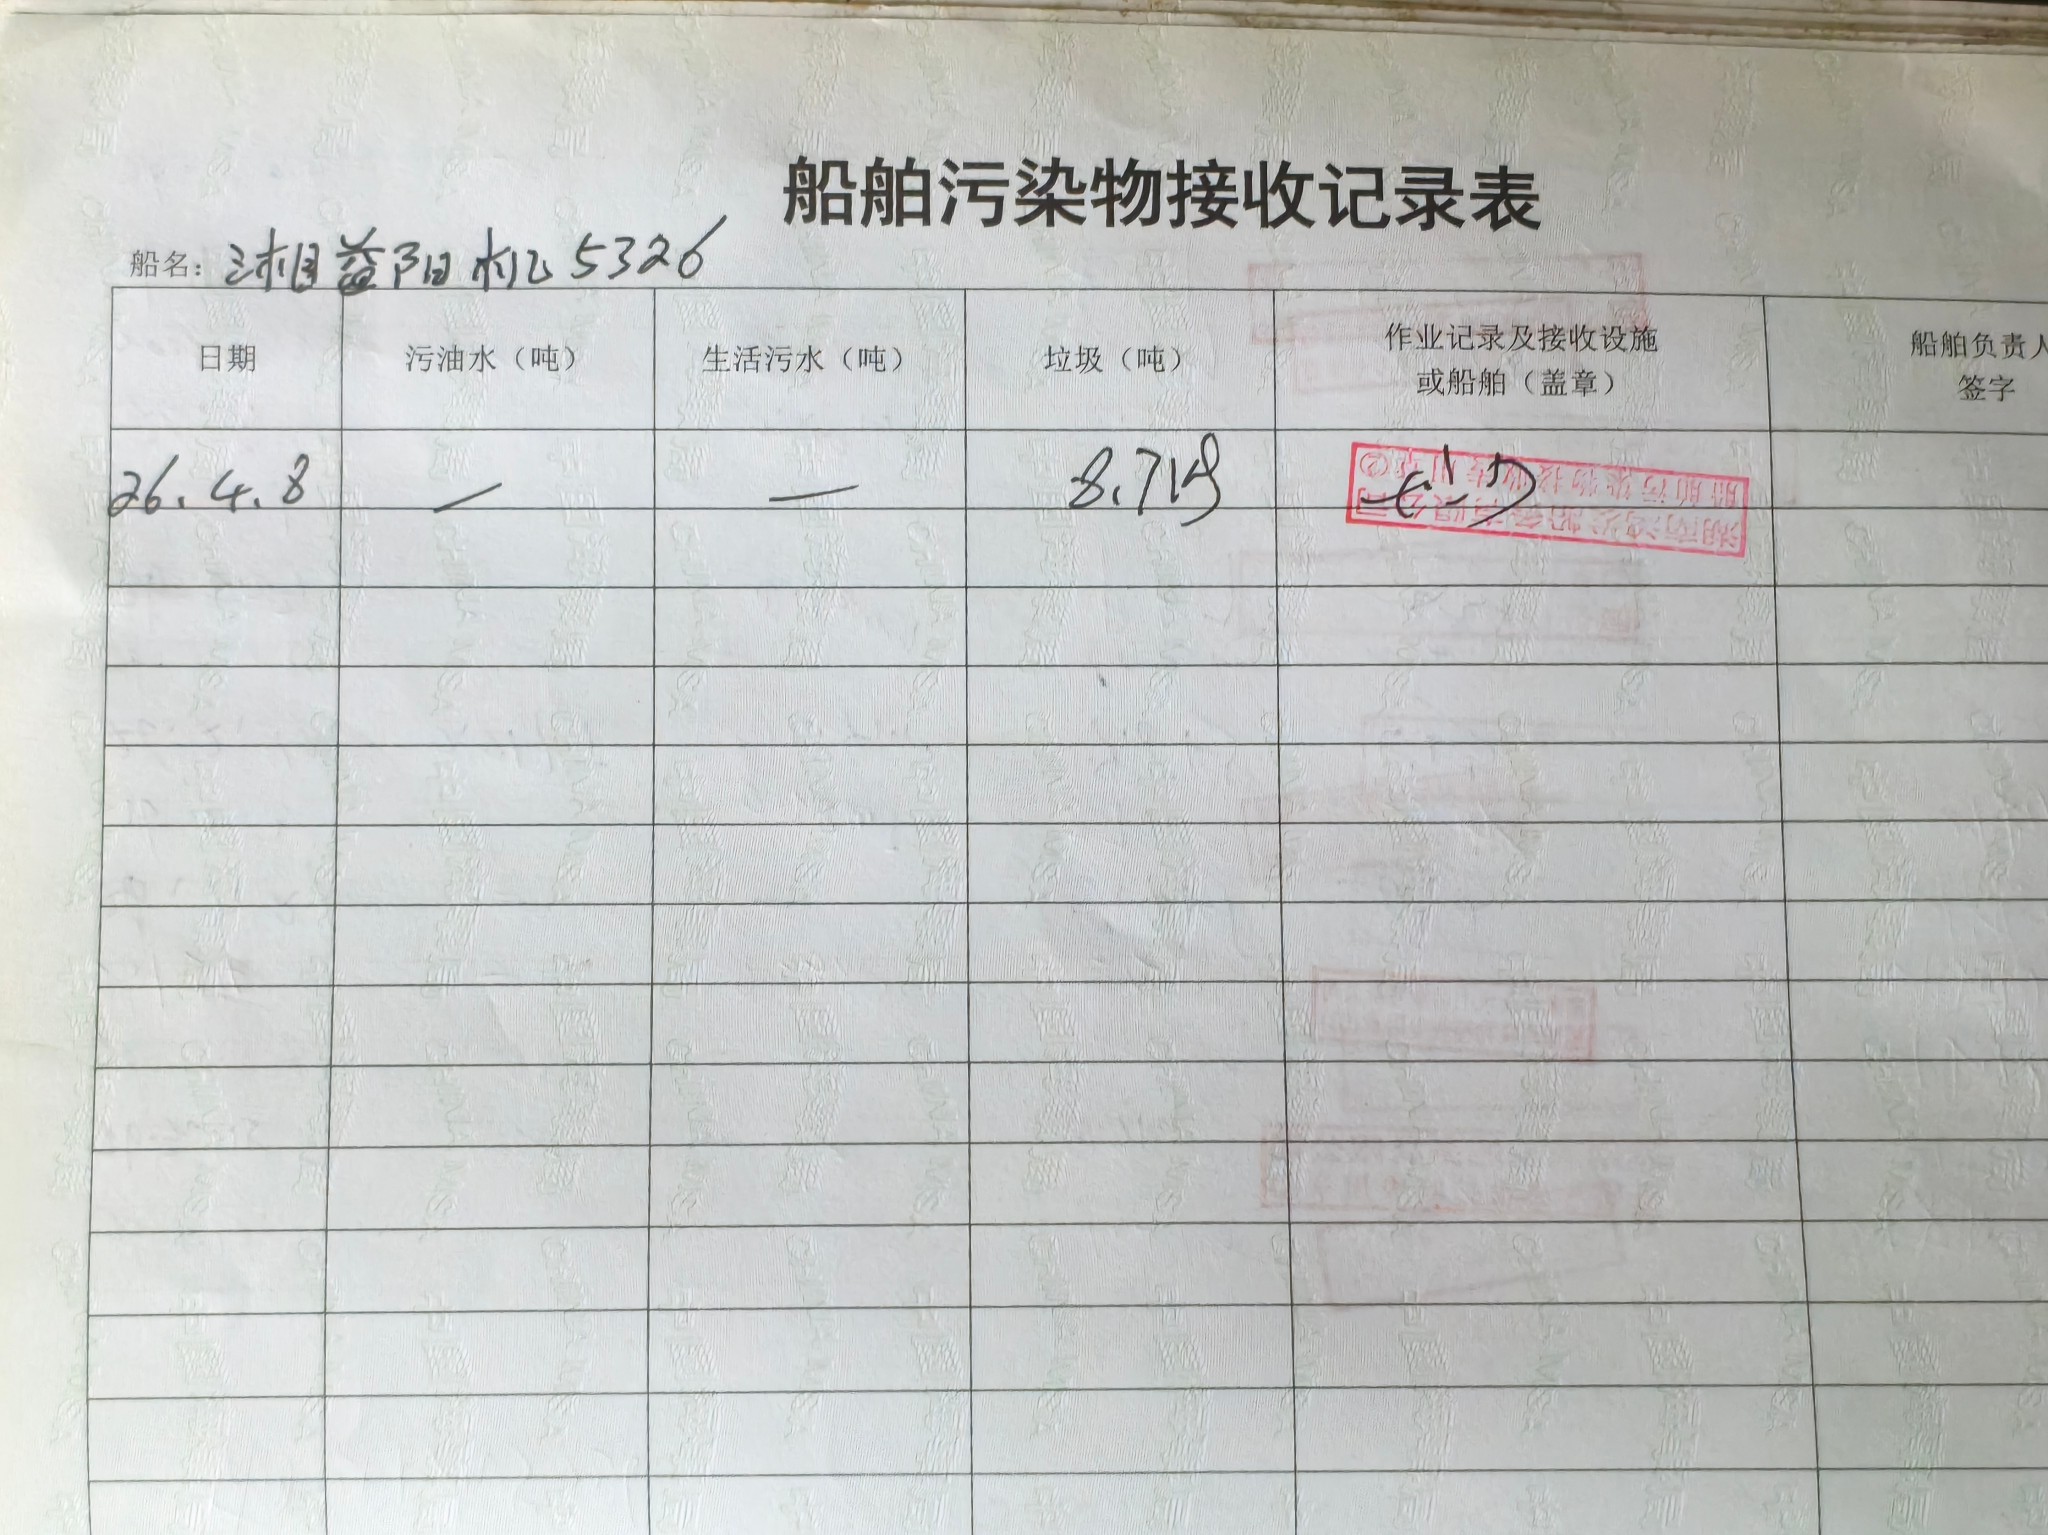 船舶污染物接收记录表
船名：湘益阳机5326
日期 污油水（吨） 生活污水（吨） 垃圾（吨） 作业记录及接收设施 船舶负责人
或船舶（盖章） 签字
26.4.8 — — 8.7kg
船舶污染物接收专用章②